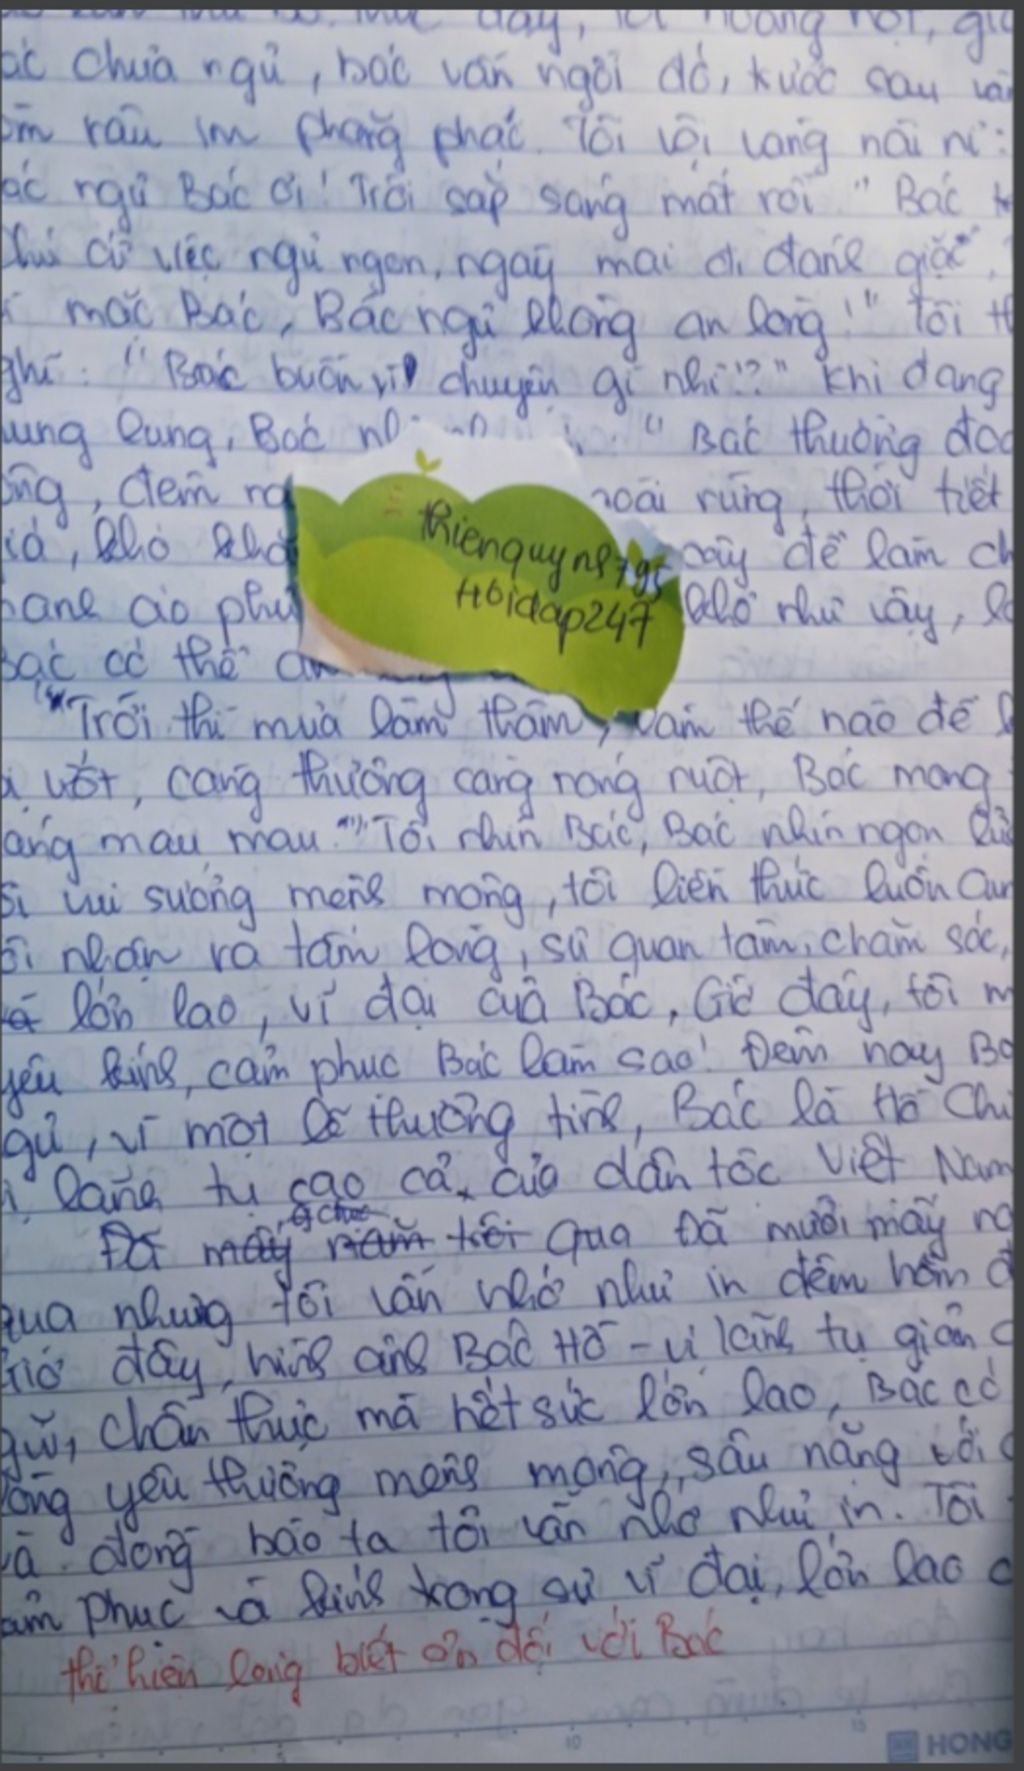 thức dậy, tôi hoảng hốt,
ác chưa ngủ, bác vẫn ngồi đó, trước sau vẫn
ồm râu im phăng phắc. Tôi vội vàng nài nỉ:
ác ngủ Bác ơi! Trời sắp sáng mất rồi" Bác
Chú cứ việc ngủ ngon, ngày mai đi đánh giặc".
mặc Bác, Bác ngủ không an lòng!" Tôi th
ghĩ: "Bác buồn vì chuyện gì nhỉ?" Khi đang
ung lung, Bác nh " Bác thương đoà
ông, đêm na ngoài rừng, thời tiết
iá, kho khô cây để làm ch
anh áo phủ khổ như vậy, là
Bác có thể an
"Trời thì mưa lâm thâm, làm thế nào để
ị ướt, càng thương càng nóng ruột, Bác mong
áng mau mau." Tôi nhìn Bác, Bác nhìn ngọn lử
ôi vui sướng mênh mông, tôi liền thức luôn cùn
ôi nhận ra tấm lòng, sự quan tâm, chăm sóc,
lớn lao, vĩ đại của Bác, Giờ đây, tôi m
yêu kính, cảm phục Bác làm sao! Đêm nay Bá
gủ, vì một lẽ thường tình, Bác là Hồ Chí
ị lãnh tụ cao cả của dân tộc Việt Nam
Đã mấy năm trôi qua Đã mười mấy nă
qua nhưng tôi vẫn nhớ như in đêm hôm đ
Giờ đây, hình ảnh Bác Hồ - vị lãnh tụ giản d
gũi, chân thực mà hết sức lớn lao, Bác có
lòng yêu thương mênh mông, sâu nặng với
và đồng bào ta tôi vẫn nhớ như in. Tôi
ảm phục và kính trọng sự vĩ đại, lớn lao c
thể hiện lòng biết ơn đối với Bác
thienquynh795
Hoidap247
5 10 15
HONG